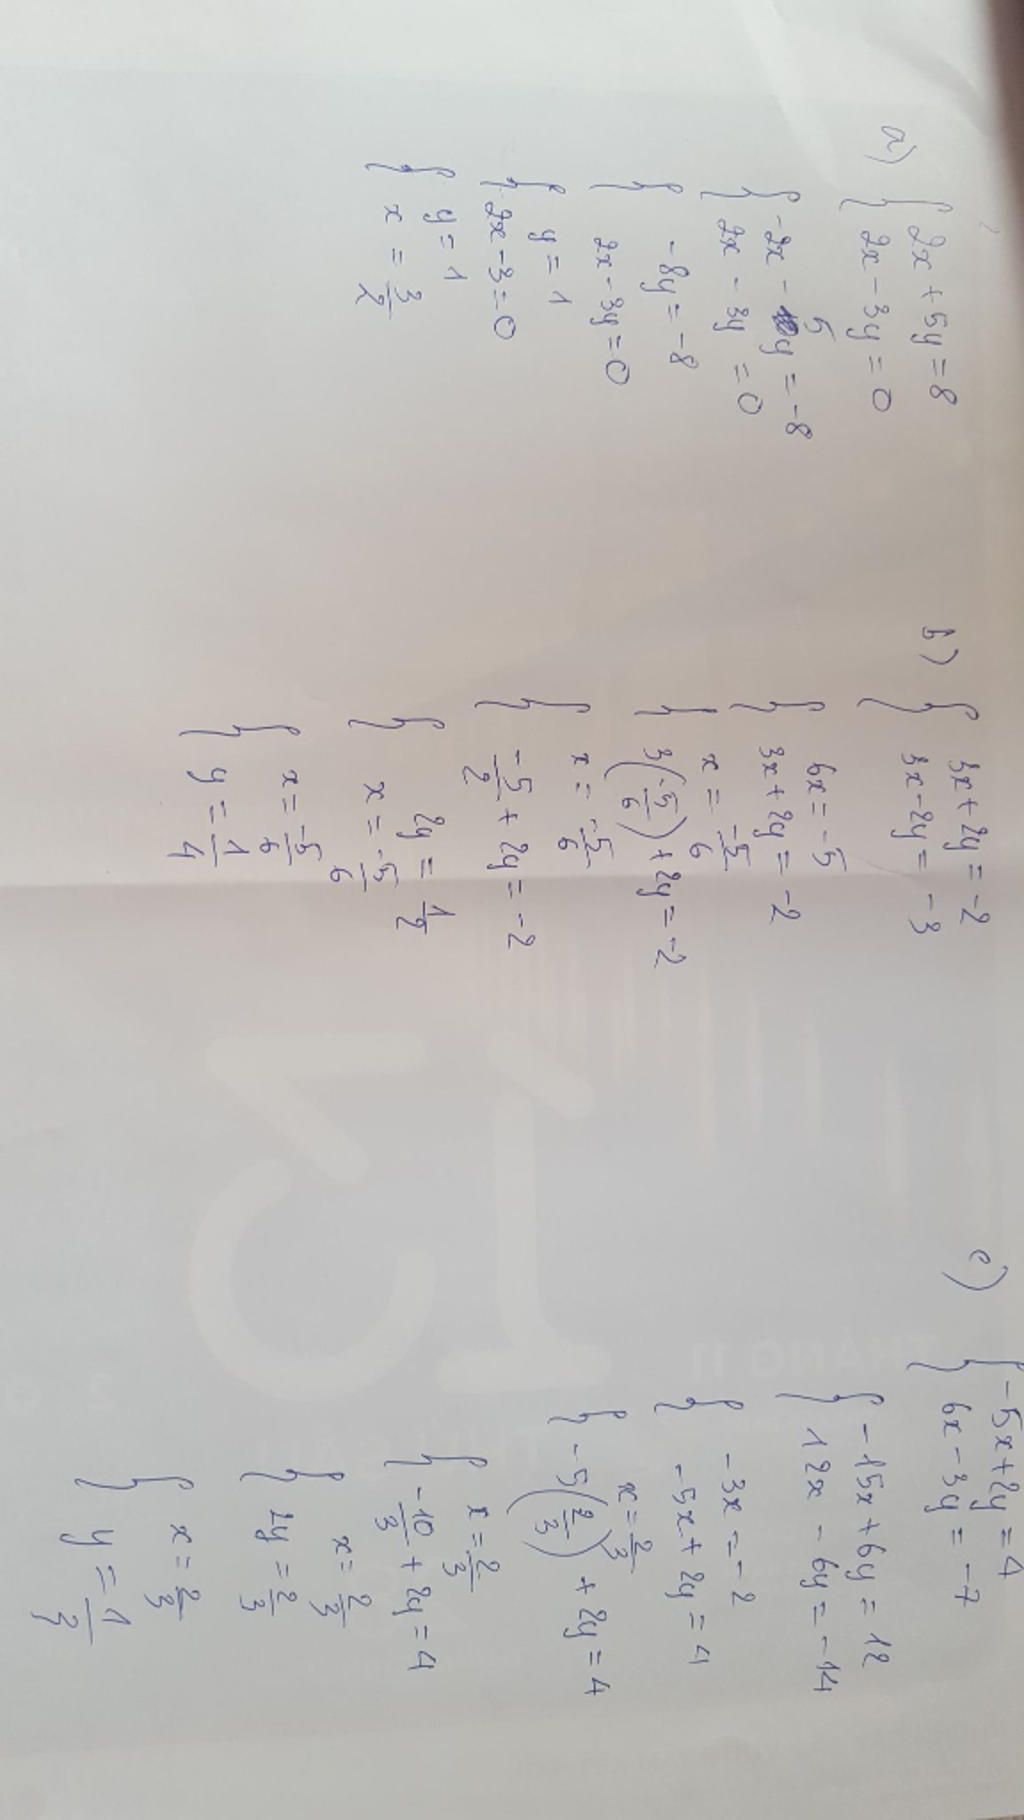 a) { 2x + 5y = 8
2x - 3y = 0
{ -2x - 5y = -8
2x - 3y = 0
{ -8y = -8
2x - 3y = 0
{ y = 1
2x - 3 = 0
{ y = 1
x = 3/2
b) { 3x + 2y = -2
3x - 2y = -3
{ 6x = -5
3x + 2y = -2
{ x = -5/6
3(-5/6) + 2y = -2
{ x = -5/6
-5/2 + 2y = -2
{ 2y = 1/2
x = -5/6
{ x = -5/6
y = 1/4
c) { -5x + 2y = 4
6x - 3y = -7
{ -15x + 6y = 12
12x - 6y = -14
{ -3x = -2
-5x + 2y = 4
{ x = 2/3
-5(2/3) + 2y = 4
{ x = 2/3
-10/3 + 2y = 4
{ x = 2/3
2y = 2/3
{ x = 2/3
y = 1/3
THÁNG 11
13